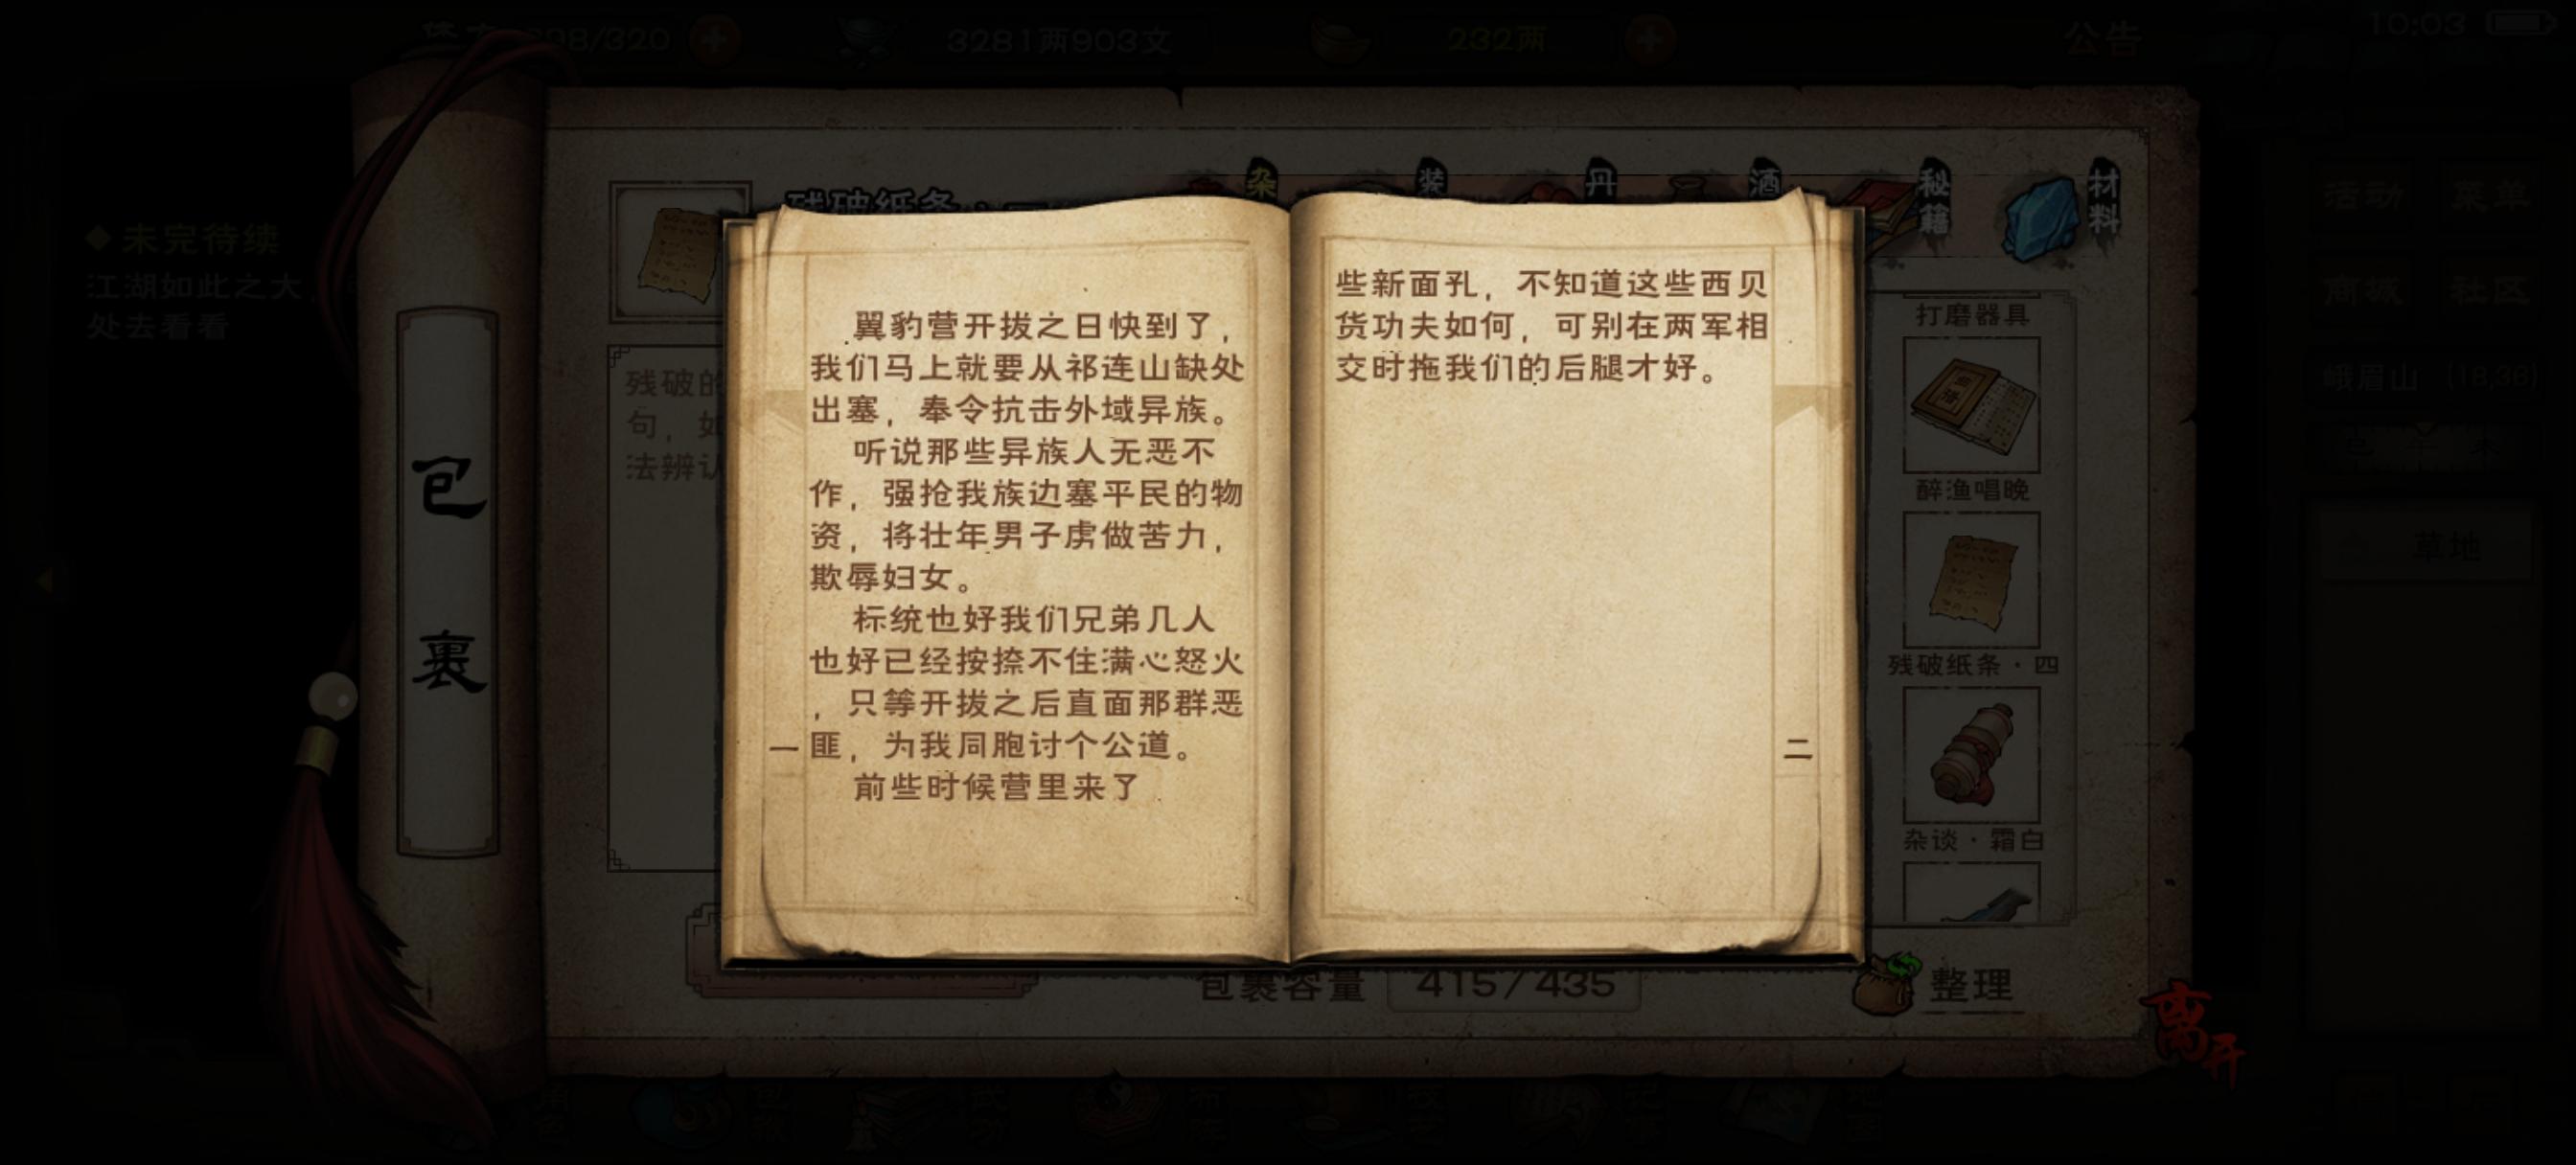 308/320
3281两903文
232两
公告
10:03
未完待续
江湖如此之大，
处去看看
包裹
残破纸条
杂
装
丹
酒
秘籍
材料
残破的
句，如
法辨认
翼豹营开拔之日快到了，
我们马上就要从祁连山缺处
出塞，奉令抗击外域异族。
听说那些异族人无恶不
作，强抢我族边塞平民的物
资，将壮年男子虏做苦力，
欺辱妇女。
标统也好我们兄弟几人
也好已经按捺不住满心怒火
，只等开拔之后直面那群恶
匪，为我同胞讨个公道。
前些时候营里来了
一
些新面孔，不知道这些西贝
货功夫如何，可别在两军相
交时拖我们的后腿才好。
二
打磨器具
醉渔唱晚
残破纸条·四
杂谈·霜白
包裹容量
415/435
整理
离开
活动
菜单
商城
社区
峨眉山 (18,36)
草地